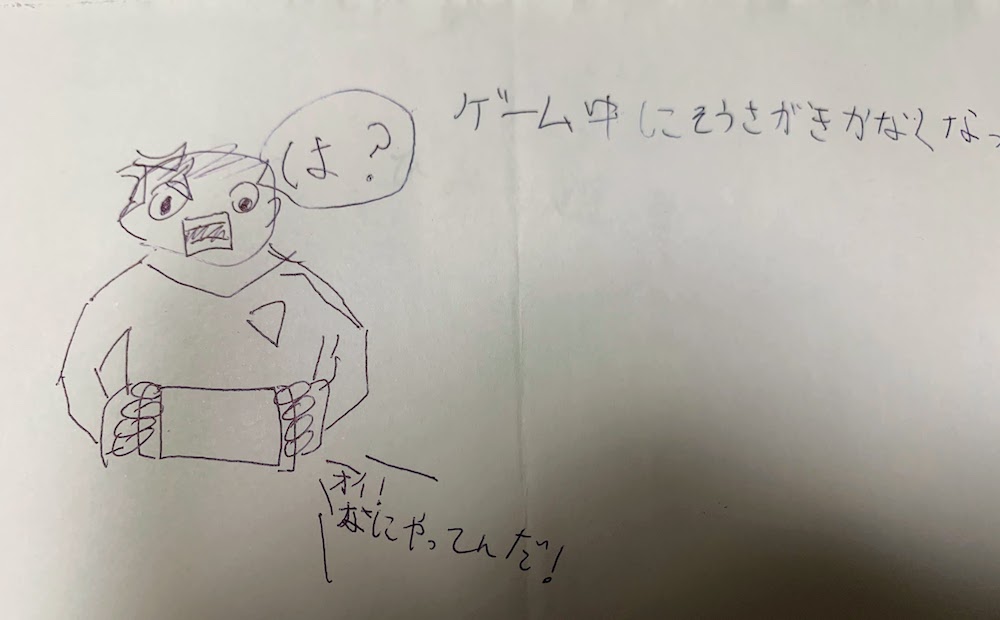 ゲーム中にそうさがきかなくなっ
は?
オイ!
なにやってんだ!